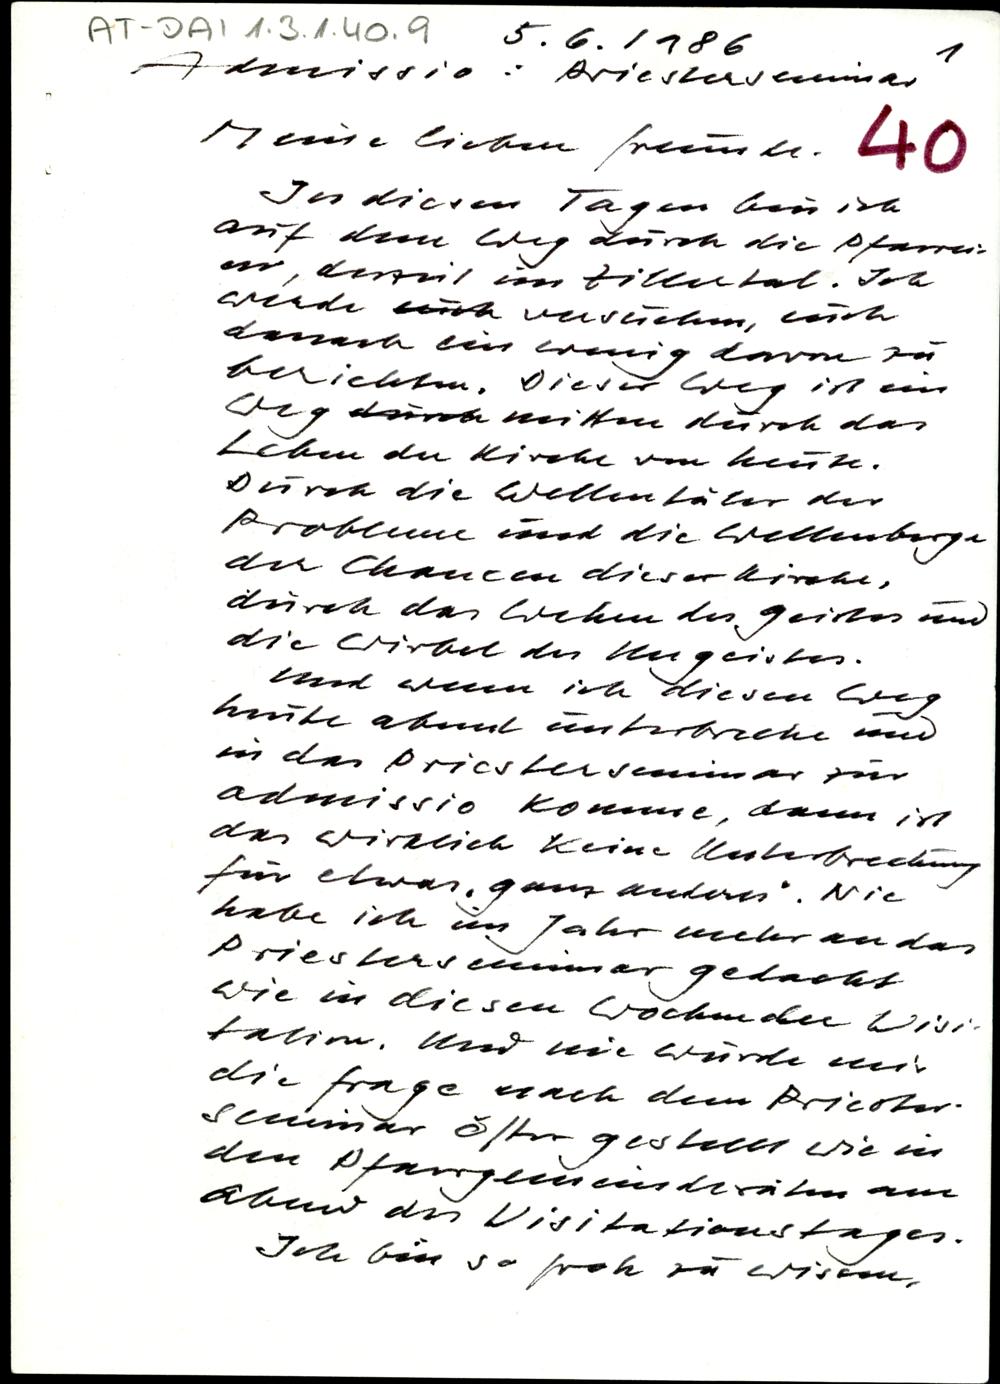 AT-DAI 1.3.1.40.9
5.6.1986
1
Admissio : Priesterseminar
40
Meine lieben Freunde.
In diesen Tagen bin ich
auf dem Weg durch die Pfarrei-
en, derzeit im Zillertal. Ich
werde euch versuchen, euch
danach ein wenig davon zu
berichten. Dieser Weg ist ein
Weg durch mitten durch das
Leben der Kirche von heute.
Durch die Wellentäler der
Probleme und die Wellenberge
der Chancen dieser Kirche,
durch das Wehen des Geistes und
die Wirbel des Ungeistes.
Und wenn ich diesen Weg
heute abend unterbreche und
in das Priesterseminar zur
admissio komme, dann ist
das wirklich keine Unterbrechung
für etwas „ganz anderes". Nie
habe ich im Jahr mehr an das
Priesterseminar gedacht
wie in diesen Wochen der Visi-
tation. Und nie wurde mir
die Frage nach dem Priester-
seminar öfter gestellt wie in
den Pfarrgemeinderäten am
Abend des Visitationstages.
Ich bin so froh zu wissen,